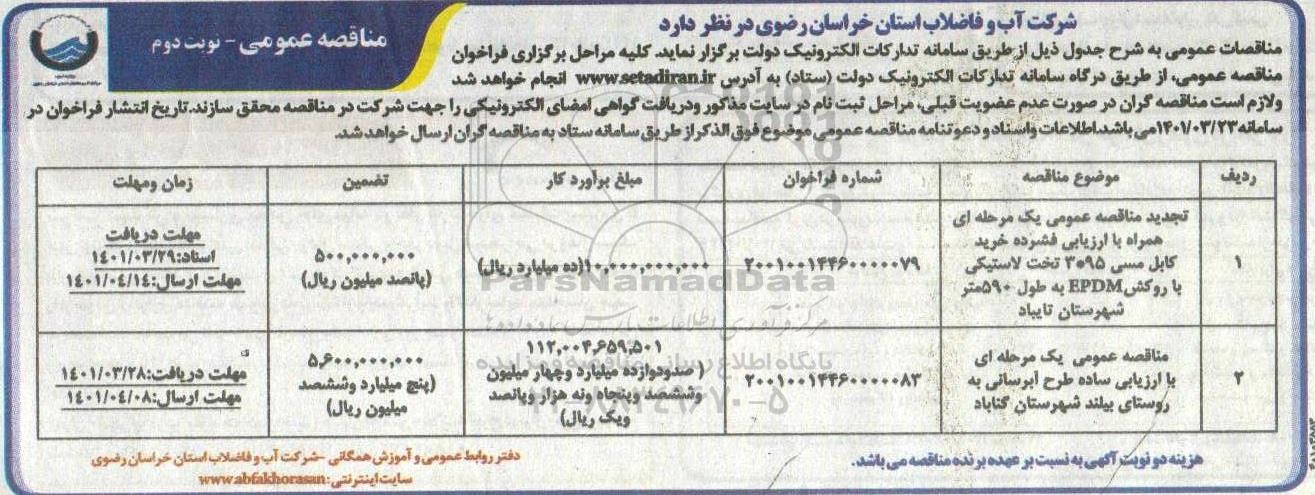 مناقصه عمومی - نوبت دوم
شرکت آب و فاضلاب استان خراسان رضوی در نظر دارد
مناقصات عمومی به شرح جدول ذیل از طریق سامانه تدارکات الکترونیک دولت برگزار نماید. کلیه مراحل برگزاری فراخوان
مناقصه عمومی، از طریق درگاه سامانه تدارکات الکترونیک دولت (ستاد) به آدرس www.setadiran.ir انجام خواهد شد
ولازم است مناقصه گران در صورت عدم عضویت قبلی، مراحل ثبت نام در سایت مذکور ودریافت گواهی امضای الکترونیکی را جهت شرکت در مناقصه محقق سازند.تاریخ انتشار فراخوان در
سامانه ۱۴۰۱/۰۳/۲۳می باشد.اطلاعات واسناد و دعوتنامه مناقصه عمومی موضوع فوق الذکر از طریق سامانه ستاد به مناقصه گران ارسال خواهد شد.
ردیف
موضوع مناقصه
شماره فراخوان
مبلغ برآورد کار
تضمین
زمان ومهلت
۱
تجدید مناقصه عمومی یک مرحله ای
همراه با ارزیابی فشرده خرید
کابل مسی ۹۵*۳ تخت لاستیکی
با روکشEPDM به طول ۵۹۰متر
شهرستان تایباد
۲۰۰۱۰۰۱۴۴۶۰۰۰۰۰۷۹
۱۰,۰۰۰,۰۰۰,۰۰۰(ده میلیارد ریال)
۵۰۰,۰۰۰,۰۰۰
(پانصد میلیون ریال)
مهلت دریافت
اسناد:۱۴۰۱/۰۳/۲۹
مهلت ارسال:۱۴۰۱/۰۴/۱۴
۲
مناقصه عمومی یک مرحله ای
با ارزیابی ساده طرح آبرسانی به
روستای بیلند شهرستان گناباد
۲۰۰۱۰۰۱۴۴۶۰۰۰۰۰۸۳
۱۱۲,۰۰۴,۶۵۹,۵۰۱
(صدودوازده میلیارد وچهار میلیون
وششصد وپنجاه ونه هزار وپانصد
ویک ریال)
۵,۶۰۰,۰۰۰,۰۰۰
(پنج میلیارد وششصد
میلیون ریال)
مهلت دریافت:۱۴۰۱/۰۳/۲۸
مهلت ارسال:۱۴۰۱/۰۴/۰۸
ParsNamadData
مرکز فرآوری اطلاعات پارس نماد داده ها
پایگاه اطلاع رسانی مناقصه و مزایده
۰۲۱-۸۸۳۴۹۶۷۰-۵
هزینه دو نوبت آگهی به نسبت بر عهده برنده مناقصه می باشد.
دفتر روابط عمومی و آموزش همگانی -شرکت آب و فاضلاب استان خراسان رضوی
سایت اینترنتی: www.abfakhorasan